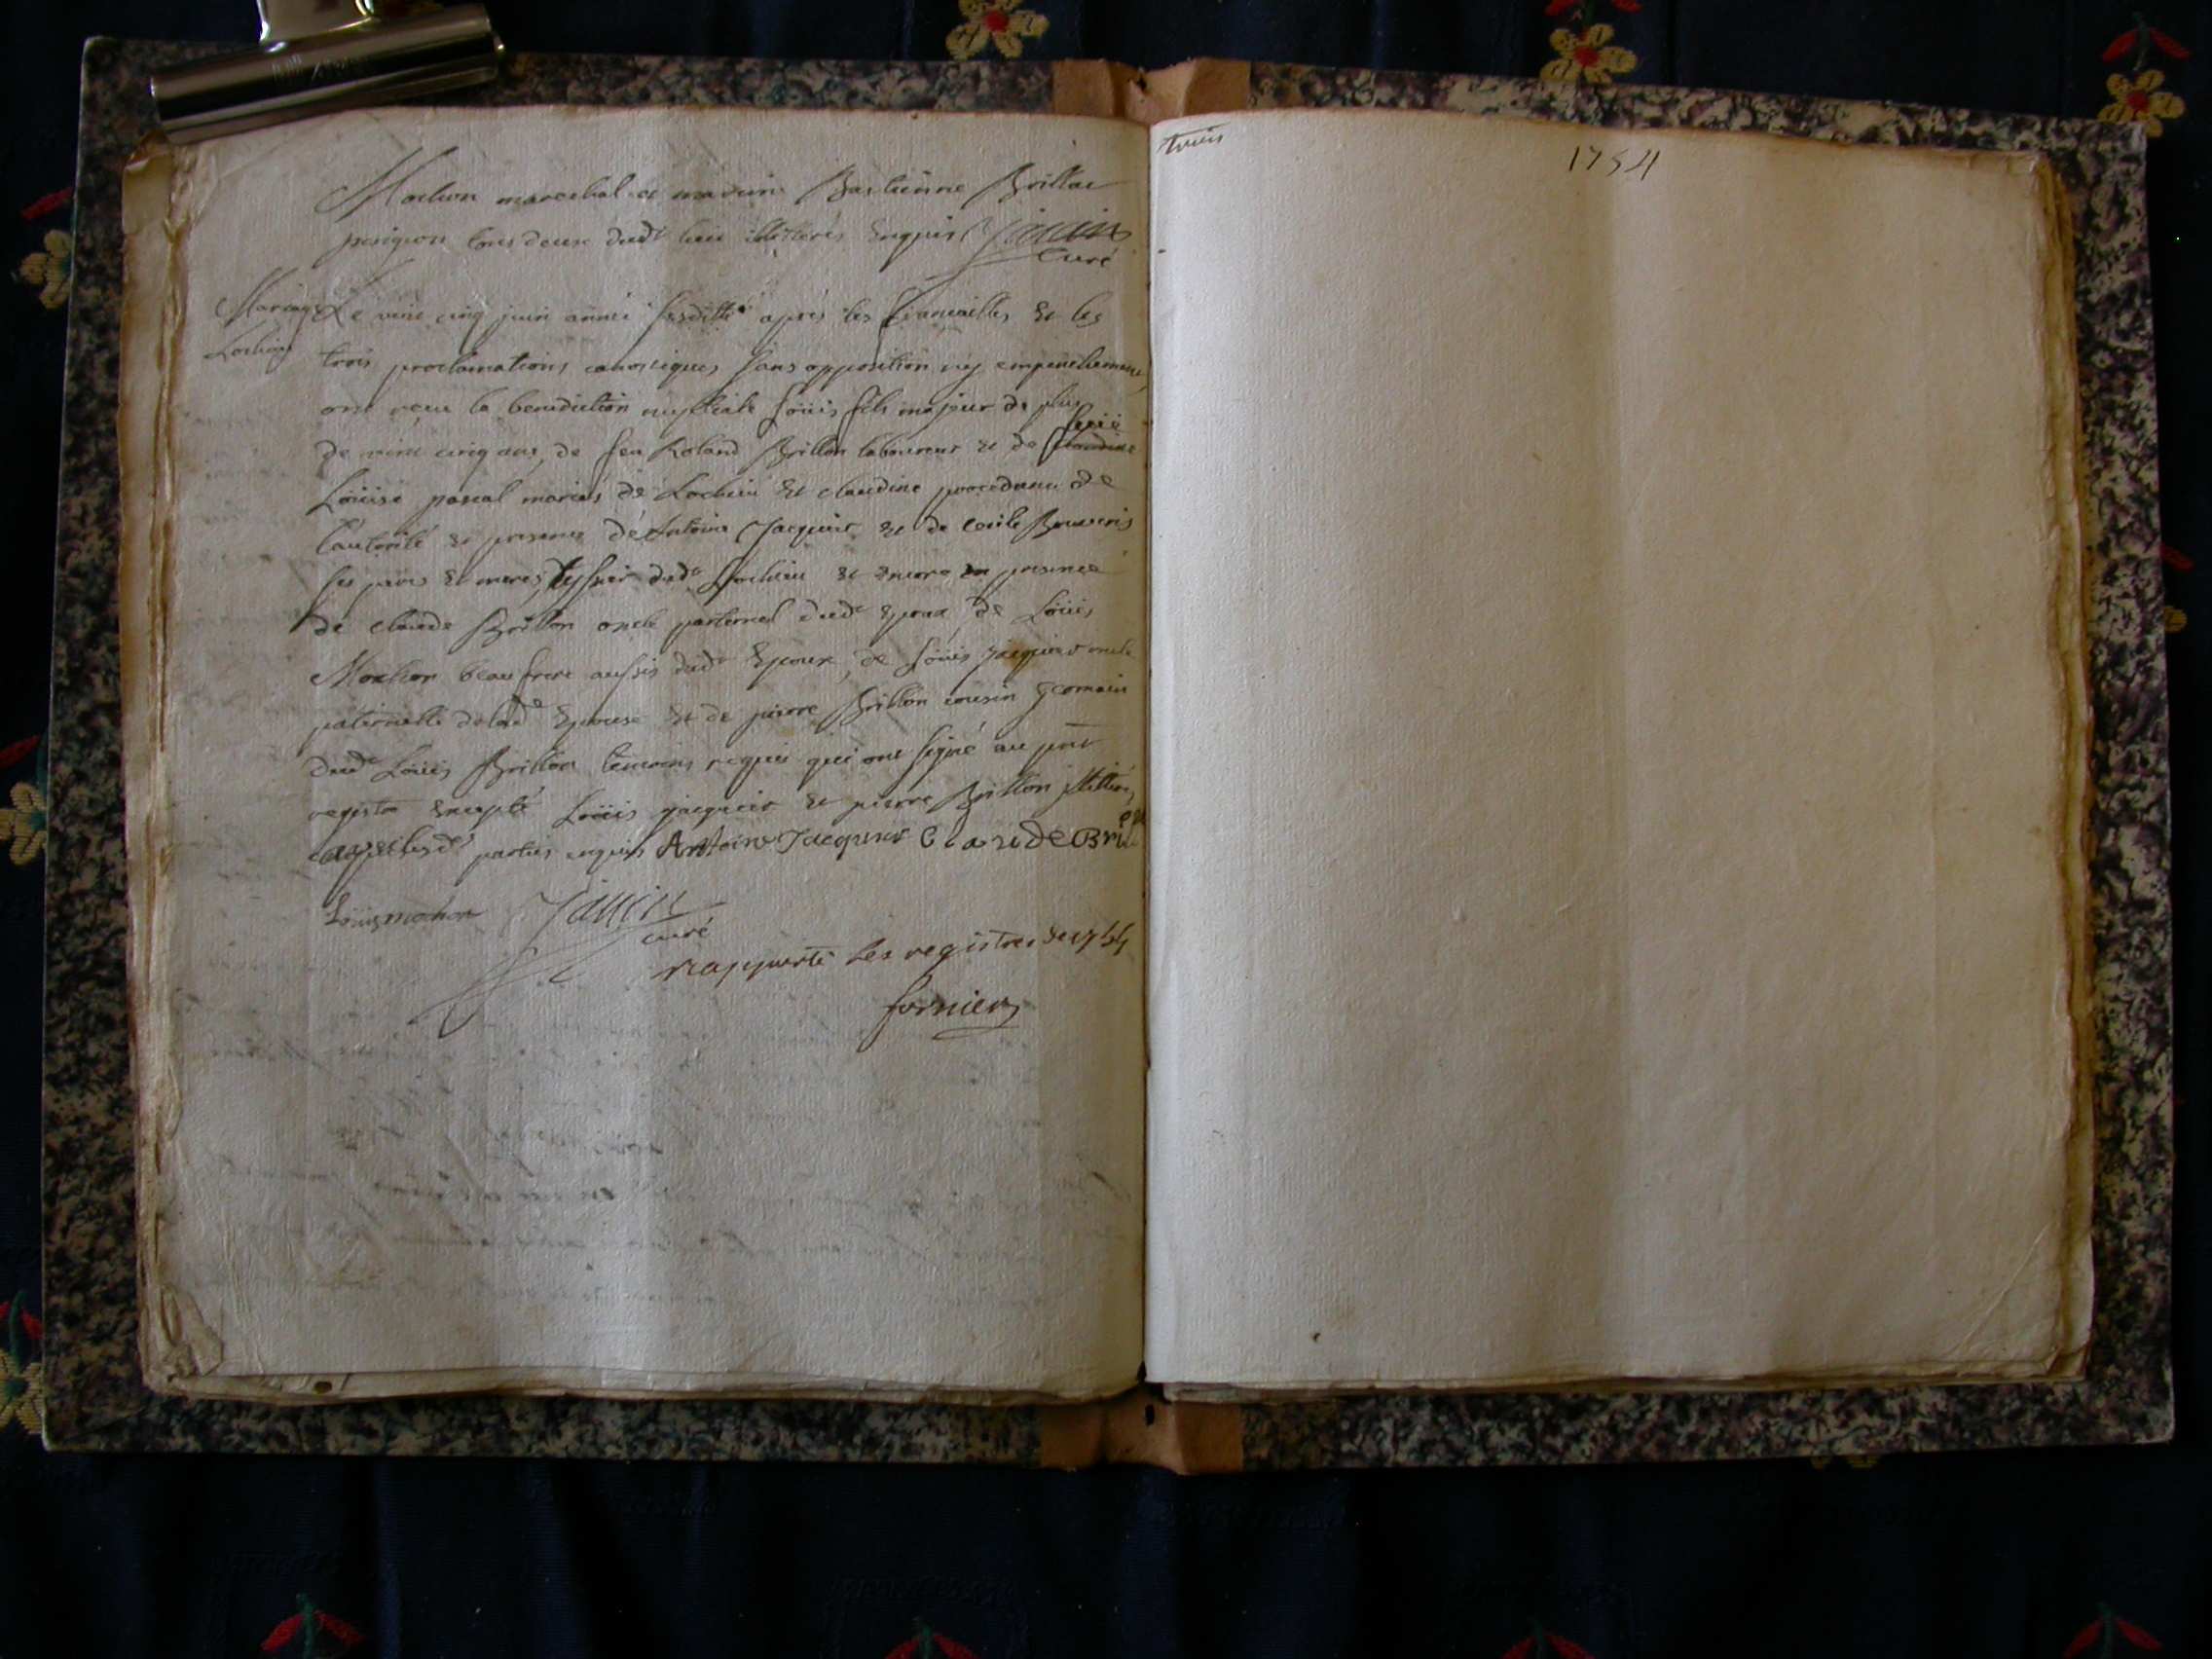 Mochon marechal et mareine Bastienne Brillat
perigeon tous deux dudt lieu illitterés enquis Jauvin
curé
Mariage
Lochieu
Le vint cinq juin année susditte après les fiancailles et les
trois proclamations canoniques sans opposition ny empeschement
ont reçu la benediction nuptiale Loüis fils majeur de plus
de vint cinq ans, de feu Roland Brillon laboureur et de feüe
Loüise pascal mariés de Lochieu et claudine procedante de
l'autorité et presence de Antoine Jacquier et de
ses peres et meres dudt Lochieu et encore en presence
de claude Brillon oncle paternel dudt epoux de Loüis
Mochon beau frere aussis dudt Epoux, de Loüis jacquier oncle
paternelle de lade Epouse et de pierre Brillon cousin germain
dudt Loüis Brillon temoins requis qui ont signé au pnt
registre excepté Loüis jacquier et pierre Brillon illitterés
parties enquis Antoine Jacquier Claude Bri
Loüis mochon Jauvin
curé
rapporté les registres de 1754
fornier
trois
1754